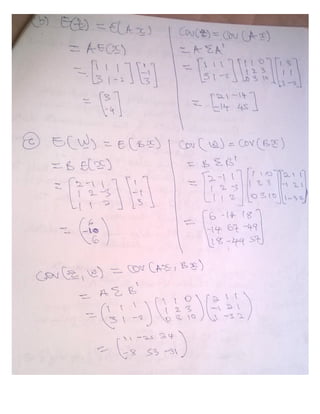 (b) E(Z) = E(A X)
= A E(X)
= [1 1 1; 3 1 -2] [1; -1; 3]
= [3; -4]
Cov(Z) = Cov(A X)
= A Σ A'
= [1 1 1; 3 1 -2] [1 1 0; 1 2 3; 0 3 10] [1 3; 1 1; 1 -2]
= [21 -14; -14 45]
(c) E(W) = E(B X)
= B E(X)
= [2 -1 1; 1 2 -3; 1 1 2] [1; -1; 3]
= (6; -10; 6)
Cov(W) = Cov(B X)
= B Σ B'
= [2 -1 1; 1 2 -3; 1 1 2] [1 1 0; 1 2 3; 0 3 10] [2 1 1; -1 2 1; 1 -3 2]
= [6 -14 18; -14 67 -49; 18 -49 57]
Cov(Z, W) = Cov(A X, B X)
= A Σ B'
= (1 1 1; 3 1 -2) (1 1 0; 1 2 3; 0 3 10) (2 1 1; -1 2 1; 1 -3 2)